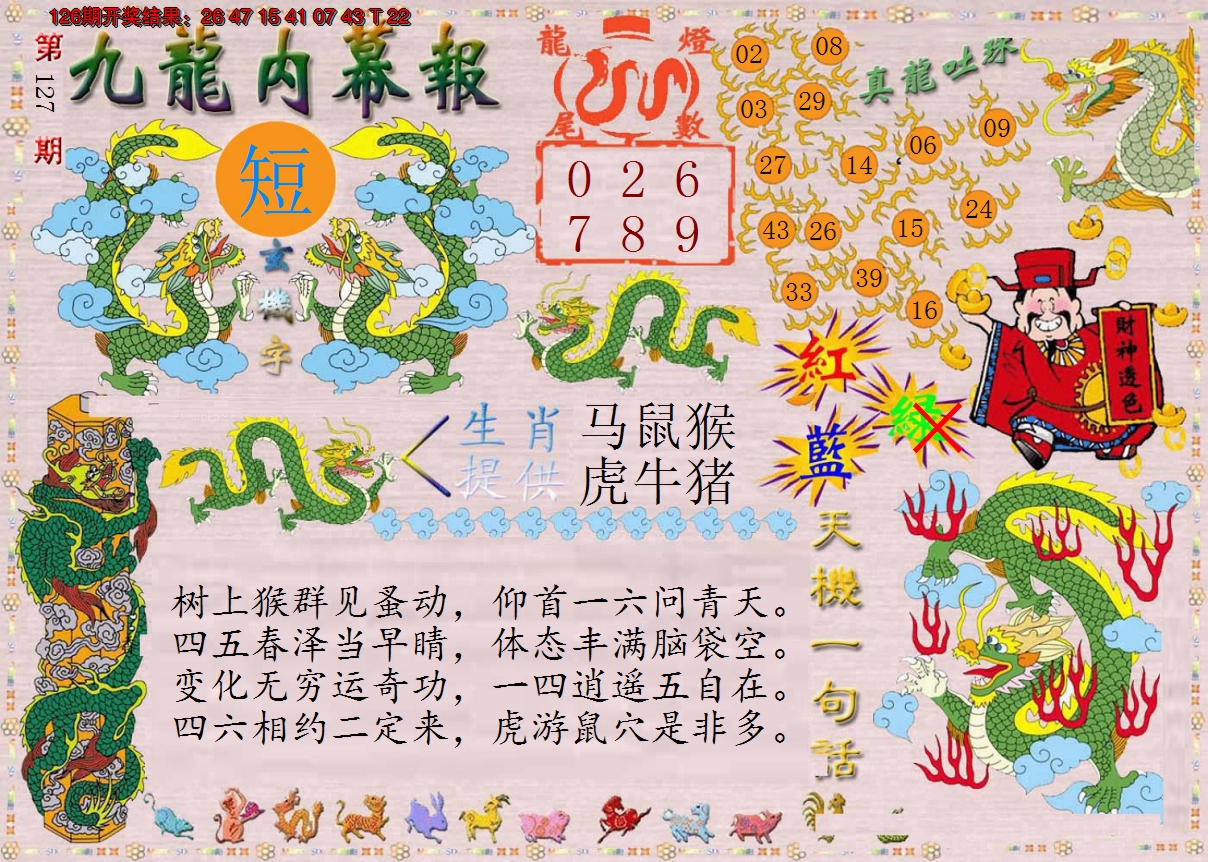 126期开奖结果：26 47 15 41 07 43 T 22
第127期
九龍内幕報
短
玄機字
龍燈
尾數
0 2 6
7 8 9
真龍吐珠
02
08
03
29
27
14
06
09
43
26
15
24
33
39
16
財神透色
紅
綠
藍
生肖
提供
马鼠猴
虎牛猪
天機一句話
树上猴群见蚤动，仰首一六问青天。
四五春泽当早晴，体态丰满脑袋空。
变化无穷运奇功，一四逍遥五自在。
四六相约二定来，虎游鼠穴是非多。